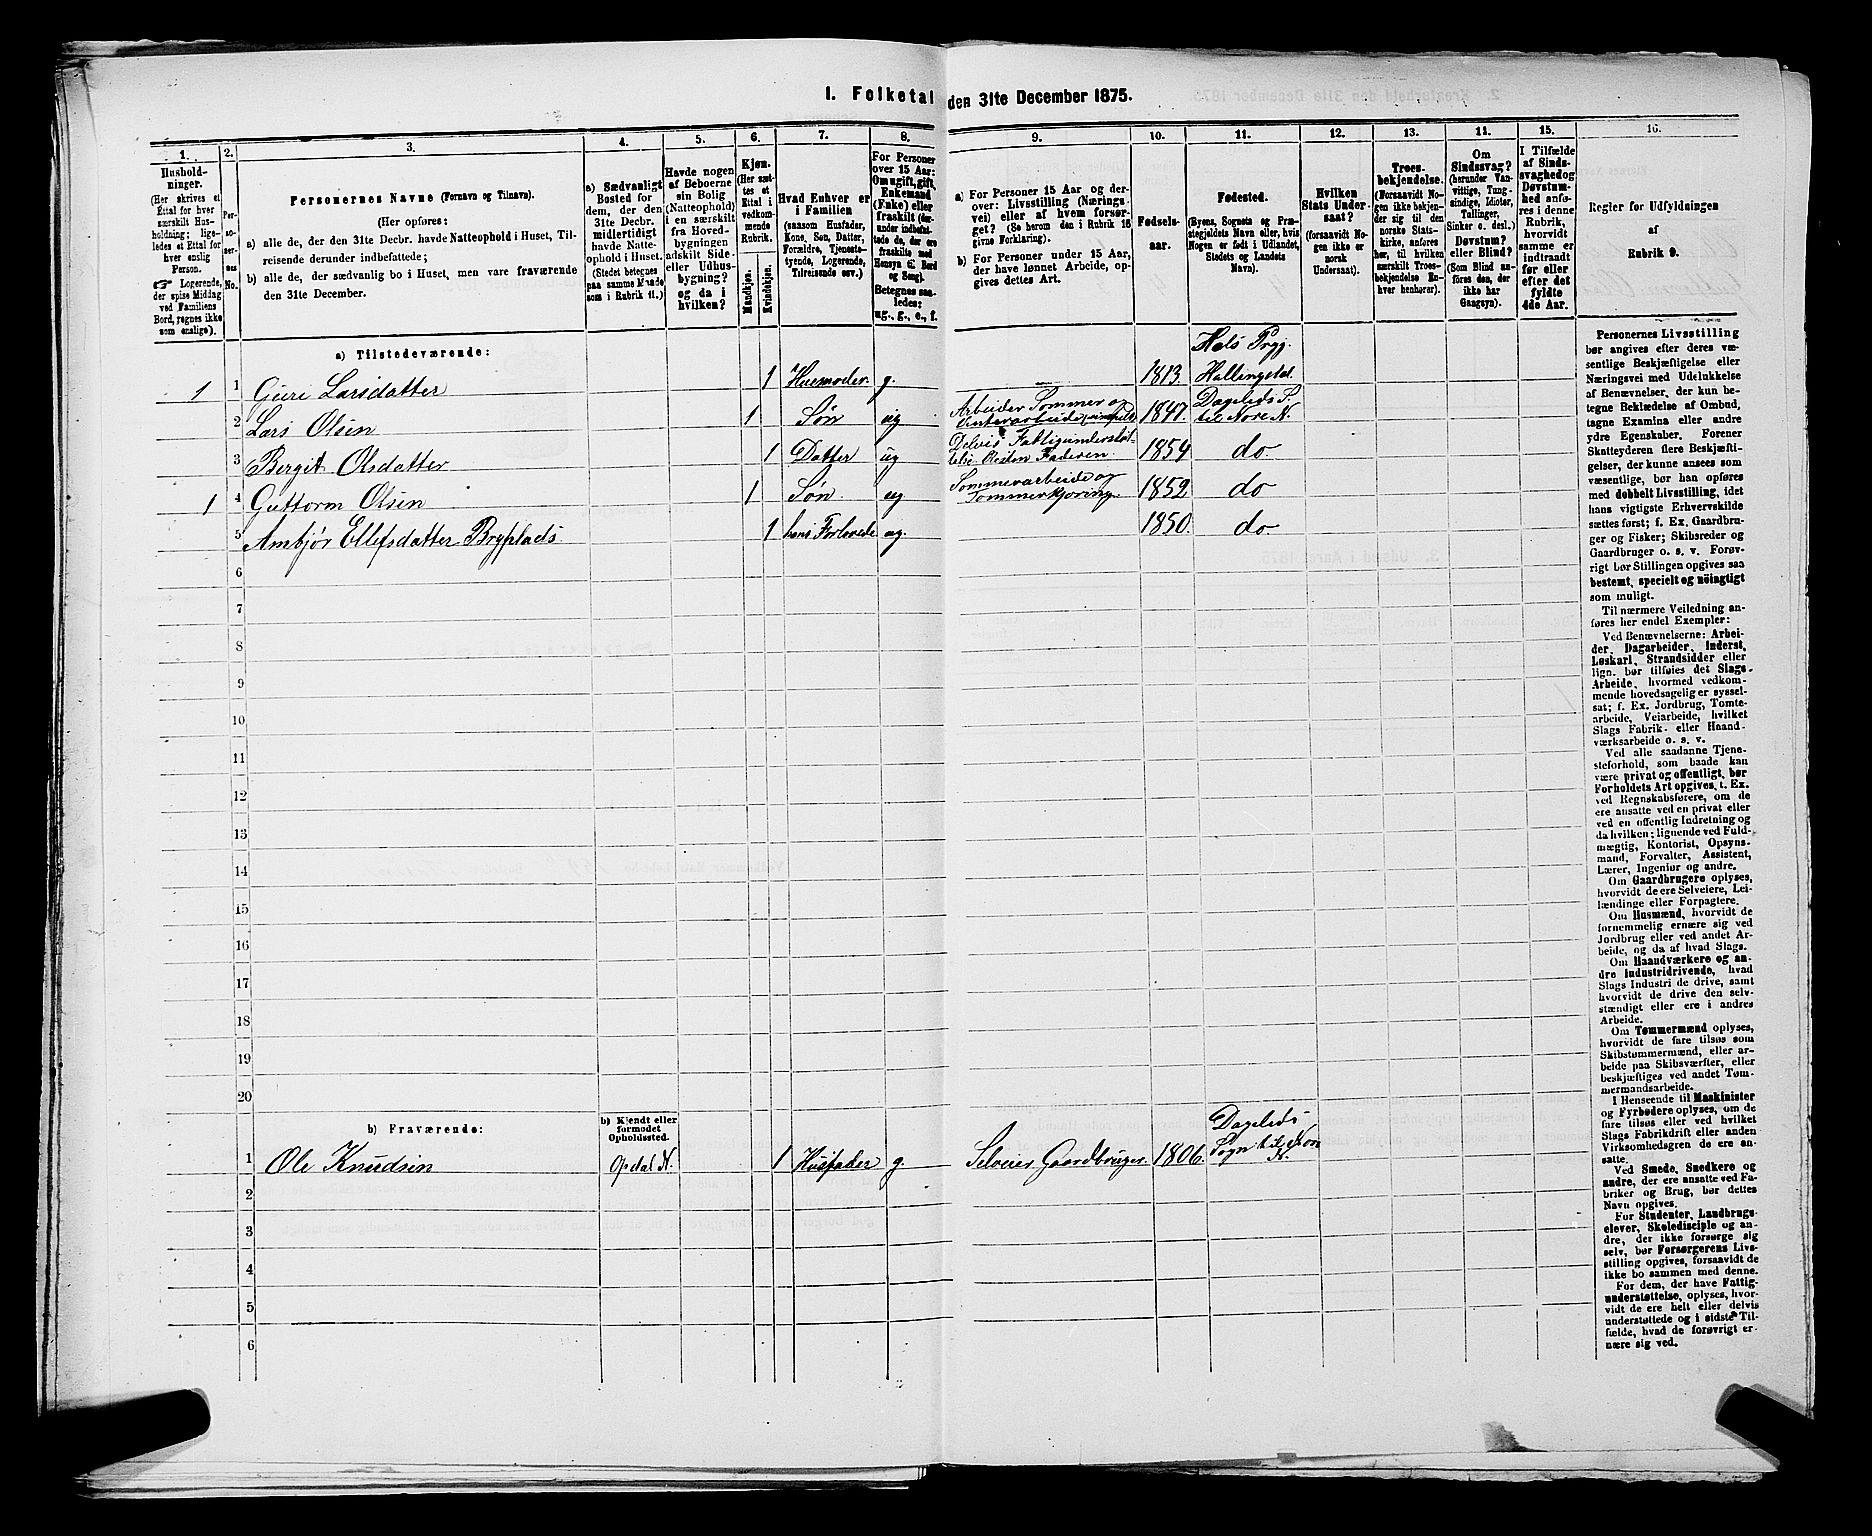 1. Folketal den 31te December 1875.
1.
2.
3.
4.
5.
6.
7.
8.
9.
10.
11.
12.
13.
11.
15.
16.
Hushold-
ninger.
(Her skrives et
Ettal for hver
særskilt Hus-
holdning; lige-
ledes et Ettal for
hver enslig
Person.
☞ Logerende,
der spise Middag
ved Familiens
Bord, regnes ikke
som enslige).
Per-
so-
ner-
nes
No.
Personernes Navne (Fornavn og Tilnavn).
(Her opføres:
a) alle de, der den 31te Decbr. havde Natteophold i Huset, Til-
reisende derunder indbefattede;
b) alle de, der sædvanlig bo i Huset, men vare fraværende
den 31te December.
a) Sædvanligt
Bosted for
dem, der den
31te Decbr.
midlertidigt
havde Natte-
ophold i Huset.
(Stedet betegnes
paa samme Maade
som i Rubrik 11.)
Havde nogen
af Beboerne
sin Bolig
(Natteophold)
i en særskilt
fra Hoved-
bygningen
adskilt Side-
eller Udhus-
bygning?
og da i
hvilken?
Kjøn.
(Her sæt-
tes et
Ettal i
vedkom-
mende
Rubrik.
Mandkjøn.
Kvindekjøn.
Hvad Enhver er
i Familien
(saasom Husfader,
Kone, Søn, Datter,
Forældre, Tjeneste-
tyende, Logerende,
Tilreisende osv.)
For Personer
over 15 Aar:
Om ugift, gift,
Enkemand
(Enke) eller
fraskilt (der-
under indbefat-
tede de, der ere
fraskilte med
Hensyn til Bord
og Seng).
Betegnes saa-
ledes:
ug., g., e., f.
a) For Personer 15 Aar og der-
over: Livsstilling (Nærings-
vei) eller af hvem forsør-
get? (Se herom den i Rubrik 16
givne Forklaring).
b) For Personer under 15 Aar,
der have lønnet Arbeide, op-
gives dettes Art.
Fødsels-
aar.
Fødested.
(Byens, Sognets og Præ-
stegjeldets Navn eller, hvis
Nogen er født i Udlandet,
Stedets og Landets
Navn).
Hvilken
Stats Under-
saat?
(forsaavidt No-
gen ikke er
norsk
Undersaat).
Troes-
bekjendelse.
(Forsaavidt No-
gen ikke bekjen-
der sig til den
norske Stats-
kirke, anføres
her, til hvilken
særskilt Troes-
bekjendelse En-
hver henhører).
Om
Sindssvag?
(herunder Van-
vittige, Tung-
sindige, Idioter,
Tullinger,
Sinker o. desl.)
Døvstum?
eller Blind?
(Som Blind an-
føres den, der
ikke har
Gangsyn).
I Tilfælde
af Sinds-
svaghed og
Døvstum-
hed anføres
i denne
Rubrik,
hvorvidt
samme er
indtraadt
før eller
efter det
fyldte
4de Aar.
Regler for Udfyldningen
af
Rubrik 9.
a) Tilstedeværende:
Hols Prgj.
1 1 Guri Larsdatter 1 Husmoder g. — 1813. Hallingdal.
2 Lars Olsen 1 Søn ug Arbeider Sommer og 1847. Dagalids S. til Nore N.
3 Bergit Olsdatter 1 Datter ug Delvis Fattigunderstøt- telse. Resten Faderen. 1854 do
1 4 Guttorm Olsen 1 Søn. ug Sommerarbeide og Sommerkjøring. 1852 do
5 Ambjør Ellefsdatter Bryplads. 1 hans Forlovede ug. 1850. do.
6
7
8
9
10
11
12
13
14
15
16
17
18
19
20
b) Fraværende:
b) Kjendt eller
formodet
Opholdssted.
1 Ole Knudsen Opdal N. 1 Husfader g. Selveier Gaardbruger. 1806. Dagalids Sogn til Nore N.
2
3
4
5
6
Personernes Livsstilling
bør angives efter deres væ-
sentlige Beskjæftigelse eller
Næringsvei med Udelukkelse
af Benævnelser, der kun be-
tegne Beklædelse af Ombud,
tagne Examina eller andre
ydre Egenskaber. Forener
Skatteyderen flere Beskjæfti-
gelser, der kunne ansees som
væsentlige, bør han opføres
med dobbelt Livsstilling, idet
hans vigtigste Erhvervskilde
sættes først; f. Ex. Gaardbru-
ger og Fisker; Skibsreder og
Gaardbruger o. s. v. Forøv-
rigt bør Stillingen opgives saa
bestemt, specielt og nøiagtigt
som muligt.
Til nærmere Veiledning an-
føres her endel Exempler:
Ved Benævnelserne: Arbei-
der, Dagarbeider, Inderst,
Løskarl, Strandsidder eller
lign. bør tilføies det Slags
Arbeide, hvormed vedkom-
mende hovedsagelig er syssel-
sat; f. Ex. Jordbrug, Tomte-
arbeide, Veiarbeide, hvilket
Slags Fabrik- eller Haand-
værksarbeide o. s. v.
Ved alle saadanne Tjene-
steforhold, som baade kan
være privat og offentligt, bør
Forholdets Art opgives, t. Ex.
ved Regnskabsførere, om de
ere ansatte ved en privat eller
ved en offentlig Indretning og
da hvilken; lignende ved Fuld-
mægtig, Kontorist, Opsyns-
mand, Forvalter, Assistent,
Lærer, Ingeniør og andre.
Om Gaardbrugere oplyses,
hvorvidt de ere Selveiere, Lei-
lændinge eller Forpagtere.
Om Husmænd, hvorvidt de
fornemmelig ernære sig ved
Jordbrug eller ved andet Ar-
beide, og da af hvad Slags.
Om Haandværkere og an-
dre Industridrivende, hvad
Slags Industri de drive, samt
hvorvidt de drive den selv-
stændigt eller ere i andres
Arbeide.
Om Tømmermænd oplyses,
hvorvidt de fare tilsøs som
Skibstømmermænd, eller ar-
beide paa Skibsværfter, eller
beskjæftiges ved andet Tøm-
mermandsarbeide.
I Henseende til Maskinister
og Fyrbødere oplyses, om de
fare tilsøs eller ved hvilket
Slags Fabrikdrift eller anden
Virksomhedsgren de ere an-
satte.
Ved Smede, Snedkere og
andre, der ere ansatte ved Fa-
briker og Brug, bør dettes
Navn opgives.
For Studenter, Landbrugs-
elever, Skoledisciple og an-
dre, der ikke forsørge sig
selv, bør Forsørgerens Livs-
stilling opgives, forsaavidt de
ikke bo sammen med denne.
For dem, der have Fattig-
understøttelse, oplyses, hvor-
vidt de ere helt eller delvis
understøttede og i sidste Til-
fælde, hvad de forøvrigt er-
nære sig ved.